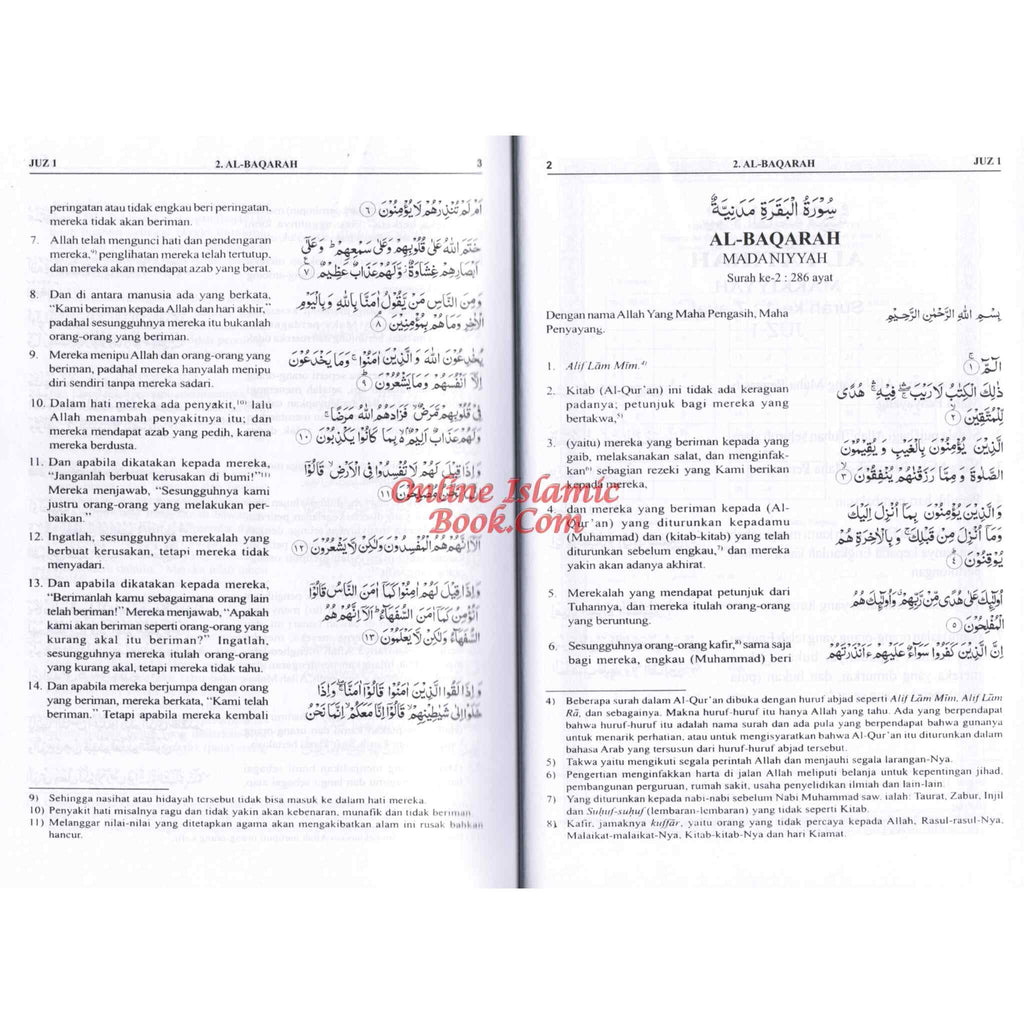 2 2. AL-BAQARAH JUZ 1
سُوْرَةُ الْبَقَرَةِ مَدَنِيَّةٌ
AL-BAQARAH
MADANIYYAH
Surah ke-2 : 286 ayat
Dengan nama Allah Yang Maha Pengasih, Maha
Penyayang.
1. Alif Lām Mīm.⁴⁾
2. Kitab (Al-Qur'an) ini tidak ada keraguan
padanya; petunjuk bagi mereka yang
bertakwa,⁵⁾
3. (yaitu) mereka yang beriman kepada yang
gaib, melaksanakan salat, dan menginfak-
kan⁶⁾ sebagian rezeki yang Kami berikan
kepada mereka,
4. dan mereka yang beriman kepada (Al-
Qur'an) yang diturunkan kepadamu
(Muhammad) dan (kitab-kitab) yang telah
diturunkan sebelum engkau,⁷⁾ dan mereka
yakin akan adanya akhirat.
5. Merekalah yang mendapat petunjuk dari
Tuhannya, dan mereka itulah orang-orang
yang beruntung.
6. Sesungguhnya orang-orang kafir,⁸⁾ sama saja
bagi mereka, engkau (Muhammad) beri
بِسْمِ اللهِ الرَّحْمٰنِ الرَّحِيْمِ
الۤمّۤ ۚ ١
ذٰلِكَ الْكِتٰبُ لَا رَيْبَ ۛ فِيْهِ ۛ هُدًى
لِّلْمُتَّقِيْنَ ٢
الَّذِيْنَ يُؤْمِنُوْنَ بِالْغَيْبِ وَيُقِيْمُوْنَ
الصَّلٰوةَ وَمِمَّا رَزَقْنٰهُمْ يُنْفِقُوْنَ ٣
وَالَّذِيْنَ يُؤْمِنُوْنَ بِمَآ اُنْزِلَ اِلَيْكَ
وَمَآ اُنْزِلَ مِنْ قَبْلِكَ ۚ وَبِالْاٰخِرَةِ هُمْ
يُوْقِنُوْنَ ٤
اُولٰۤىِٕكَ عَلٰى هُدًى مِّنْ رَّبِّهِمْ ۙ وَاُولٰۤىِٕكَ هُمُ
الْمُفْلِحُوْنَ ٥
اِنَّ الَّذِيْنَ كَفَرُوْا سَوَاۤءٌ عَلَيْهِمْ ءَاَنْذَرْتَهُمْ
4) Beberapa surah dalam Al-Qur'an dibuka dengan huruf abjad seperti Alif Lām Mīm, Alif Lām
Rā, dan sebagainya. Makna huruf-huruf itu hanya Allah yang tahu. Ada yang berpendapat
bahwa huruf-huruf itu adalah nama surah dan ada pula yang berpendapat bahwa gunanya
untuk menarik perhatian, atau untuk mengisyaratkan bahwa Al-Qur'an itu diturunkan dalam
bahasa Arab yang tersusun dari huruf-huruf abjad tersebut.
5) Takwa yaitu mengikuti segala perintah Allah dan menjauhi segala larangan-Nya.
6) Pengertian menginfakkan harta di jalan Allah meliputi belanja untuk kepentingan jihad,
pembangunan perguruan, rumah sakit, usaha penyelidikan ilmiah dan lain-lain.
7) Yang diturunkan kepada nabi-nabi sebelum Nabi Muhammad saw. ialah: Taurat, Zabur, Injil
dan Ṣuḥuf-ṣuḥuf (lembaran-lembaran) yang tidak seperti Kitab.
8) Kafir, jamaknya kuffār, yaitu orang yang tidak percaya kepada Allah, Rasul-rasul-Nya,
Malaikat-malaikat-Nya, Kitab-kitab-Nya dan hari Kiamat.
JUZ 1 2. AL-BAQARAH 3
peringatan atau tidak engkau beri peringatan,
mereka tidak akan beriman.
7. Allah telah mengunci hati dan pendengaran
mereka,⁹⁾ penglihatan mereka telah tertutup,
dan mereka akan mendapat azab yang berat.
8. Dan di antara manusia ada yang berkata,
"Kami beriman kepada Allah dan hari akhir,"
padahal sesungguhnya mereka itu bukanlah
orang-orang yang beriman.
9. Mereka menipu Allah dan orang-orang yang
beriman, padahal mereka hanyalah menipu
diri sendiri tanpa mereka sadari.
10. Dalam hati mereka ada penyakit,¹⁰⁾ lalu
Allah menambah penyakitnya itu; dan
mereka mendapat azab yang pedih, karena
mereka berdusta.
11. Dan apabila dikatakan kepada mereka,
"Janganlah berbuat kerusakan di bumi!"¹¹⁾
Mereka menjawab, "Sesungguhnya kami
justru orang-orang yang melakukan per-
baikan."
12. Ingatlah, sesungguhnya merekalah yang
berbuat kerusakan, tetapi mereka tidak
menyadari.
13. Dan apabila dikatakan kepada mereka,
"Berimanlah kamu sebagaimana orang lain
telah beriman!" Mereka menjawab, "Apakah
kami akan beriman seperti orang-orang yang
kurang akal itu beriman?" Ingatlah,
sesungguhnya mereka itulah orang-orang
yang kurang akal, tetapi mereka tidak tahu.
14. Dan apabila mereka berjumpa dengan orang
yang beriman, mereka berkata, "Kami telah
beriman." Tetapi apabila mereka kembali
اَمْ لَمْ تُنْذِرْهُمْ لَا يُؤْمِنُوْنَ ٦
خَتَمَ اللهُ عَلٰى قُلُوْبِهِمْ وَعَلٰى سَمْعِهِمْ ۗ وَعَلٰٓى
اَبْصَارِهِمْ غِشَاوَةٌ وَّلَهُمْ عَذَابٌ عَظِيْمٌ ࣖ ٧
وَمِنَ النَّاسِ مَنْ يَّقُوْلُ اٰمَنَّا بِاللهِ وَبِالْيَوْمِ
الْاٰخِرِ وَمَا هُمْ بِمُؤْمِنِيْنَ ۘ ٨
يُخٰدِعُوْنَ اللهَ وَالَّذِيْنَ اٰمَنُوْا ۚ وَمَا يَخْدَعُوْنَ
اِلَّآ اَنْفُسَهُمْ وَمَا يَشْعُرُوْنَ ۗ ٩
فِيْ قُلُوْبِهِمْ مَّرَضٌ ۙ فَزَادَهُمُ اللهُ مَرَضًا ۚ
وَلَهُمْ عَذَابٌ اَلِيْمٌ ۢ ەۙ بِمَا كَانُوْا يَكْذِبُوْنَ ١٠
وَاِذَا قِيْلَ لَهُمْ لَا تُفْسِدُوْا فِى الْاَرْضِ ۙ قَالُوْٓا
اِنَّمَا نَحْنُ مُصْلِحُوْنَ ١١
اَلَآ اِنَّهُمْ هُمُ الْمُفْسِدُوْنَ وَلٰكِنْ لَّا يَشْعُرُوْنَ ١٢
وَاِذَا قِيْلَ لَهُمْ اٰمِنُوْا كَمَآ اٰمَنَ النَّاسُ قَالُوْٓا
اَنُؤْمِنُ كَمَآ اٰمَنَ السُّفَهَاۤءُ ۗ اَلَآ اِنَّهُمْ هُمُ
السُّفَهَاۤءُ وَلٰكِنْ لَّا يَعْلَمُوْنَ ١٣
وَاِذَا لَقُوا الَّذِيْنَ اٰمَنُوْا قَالُوْٓا اٰمَنَّا ۚ وَاِذَا
خَلَوْا اِلٰى شَيٰطِيْنِهِمْ ۙ قَالُوْٓا اِنَّا مَعَكُمْ ۙ اِنَّمَا نَحْنُ
9) Sehingga nasihat atau hidayah tersebut tidak bisa masuk ke dalam hati mereka.
10) Penyakit hati misalnya ragu dan tidak yakin akan kebenaran, munafik dan tidak beriman.
11) Melanggar nilai-nilai yang ditetapkan agama akan mengakibatkan alam ini rusak bahkan
hancur.
Online Islamic
Book.Com